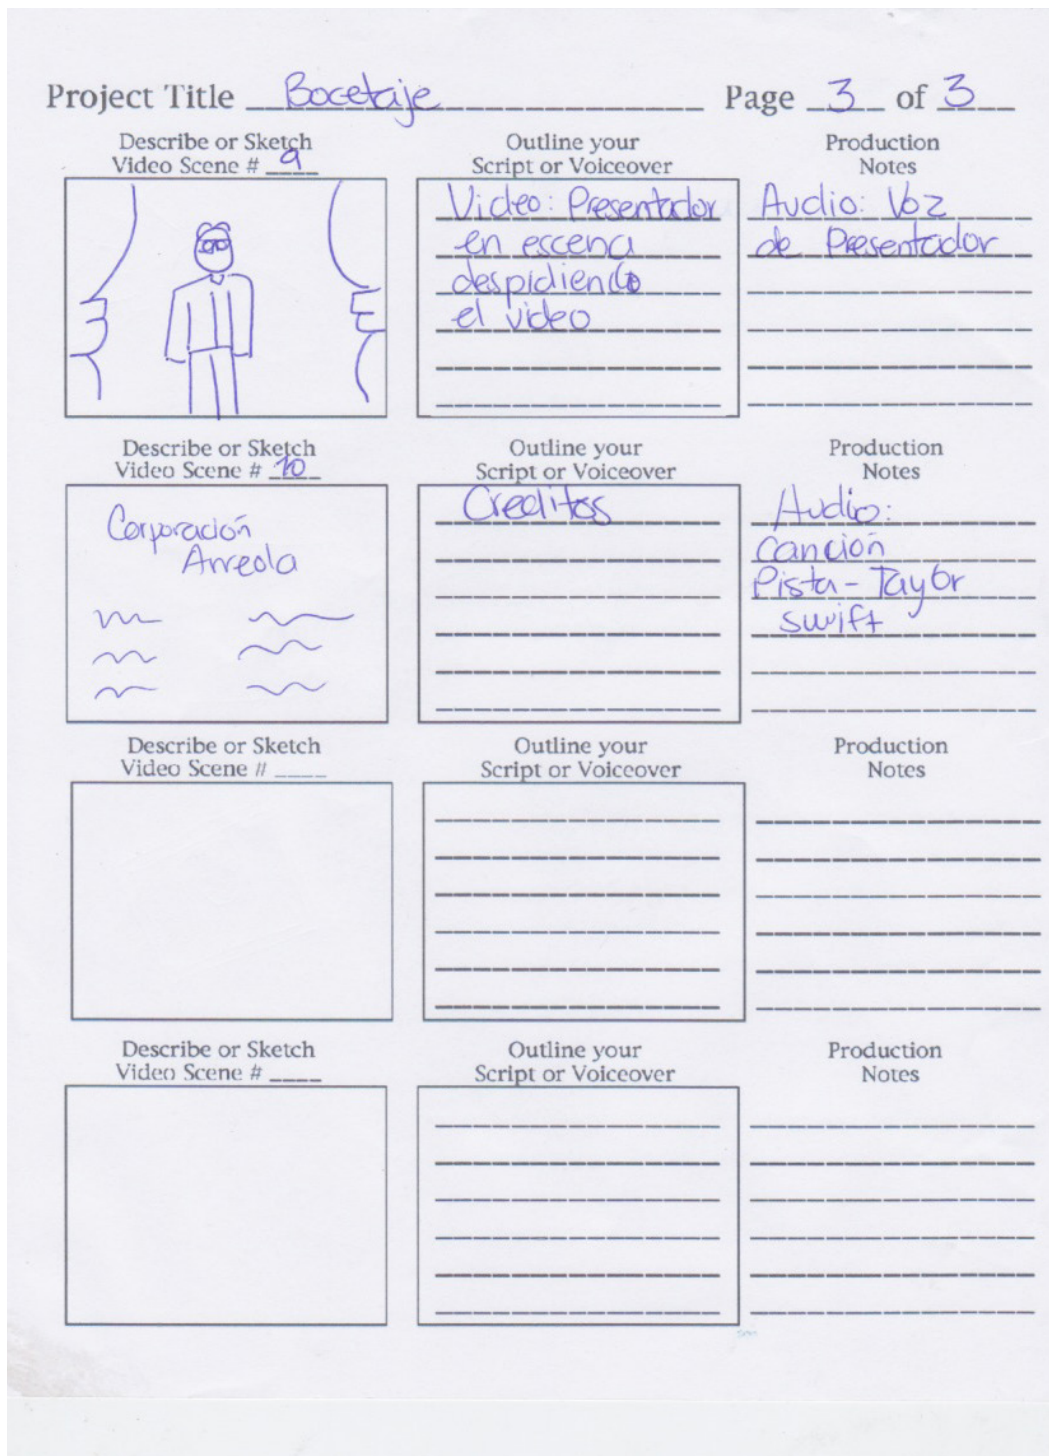 Project Title Bocetaje Page 3 of 3
Describe or Sketch
Video Scene # 9
Outline your
Script or Voiceover
Production
Notes
Video: Presentador
en escena
despidiendo
el video
Audio: Voz
de Presentador
Describe or Sketch
Video Scene # 10
Outline your
Script or Voiceover
Production
Notes
Corporación
Arreola
Creditos
Audio:
canción
Pista - Taylor
swift
Describe or Sketch
Video Scene #
Outline your
Script or Voiceover
Production
Notes
Describe or Sketch
Video Scene #
Outline your
Script or Voiceover
Production
Notes